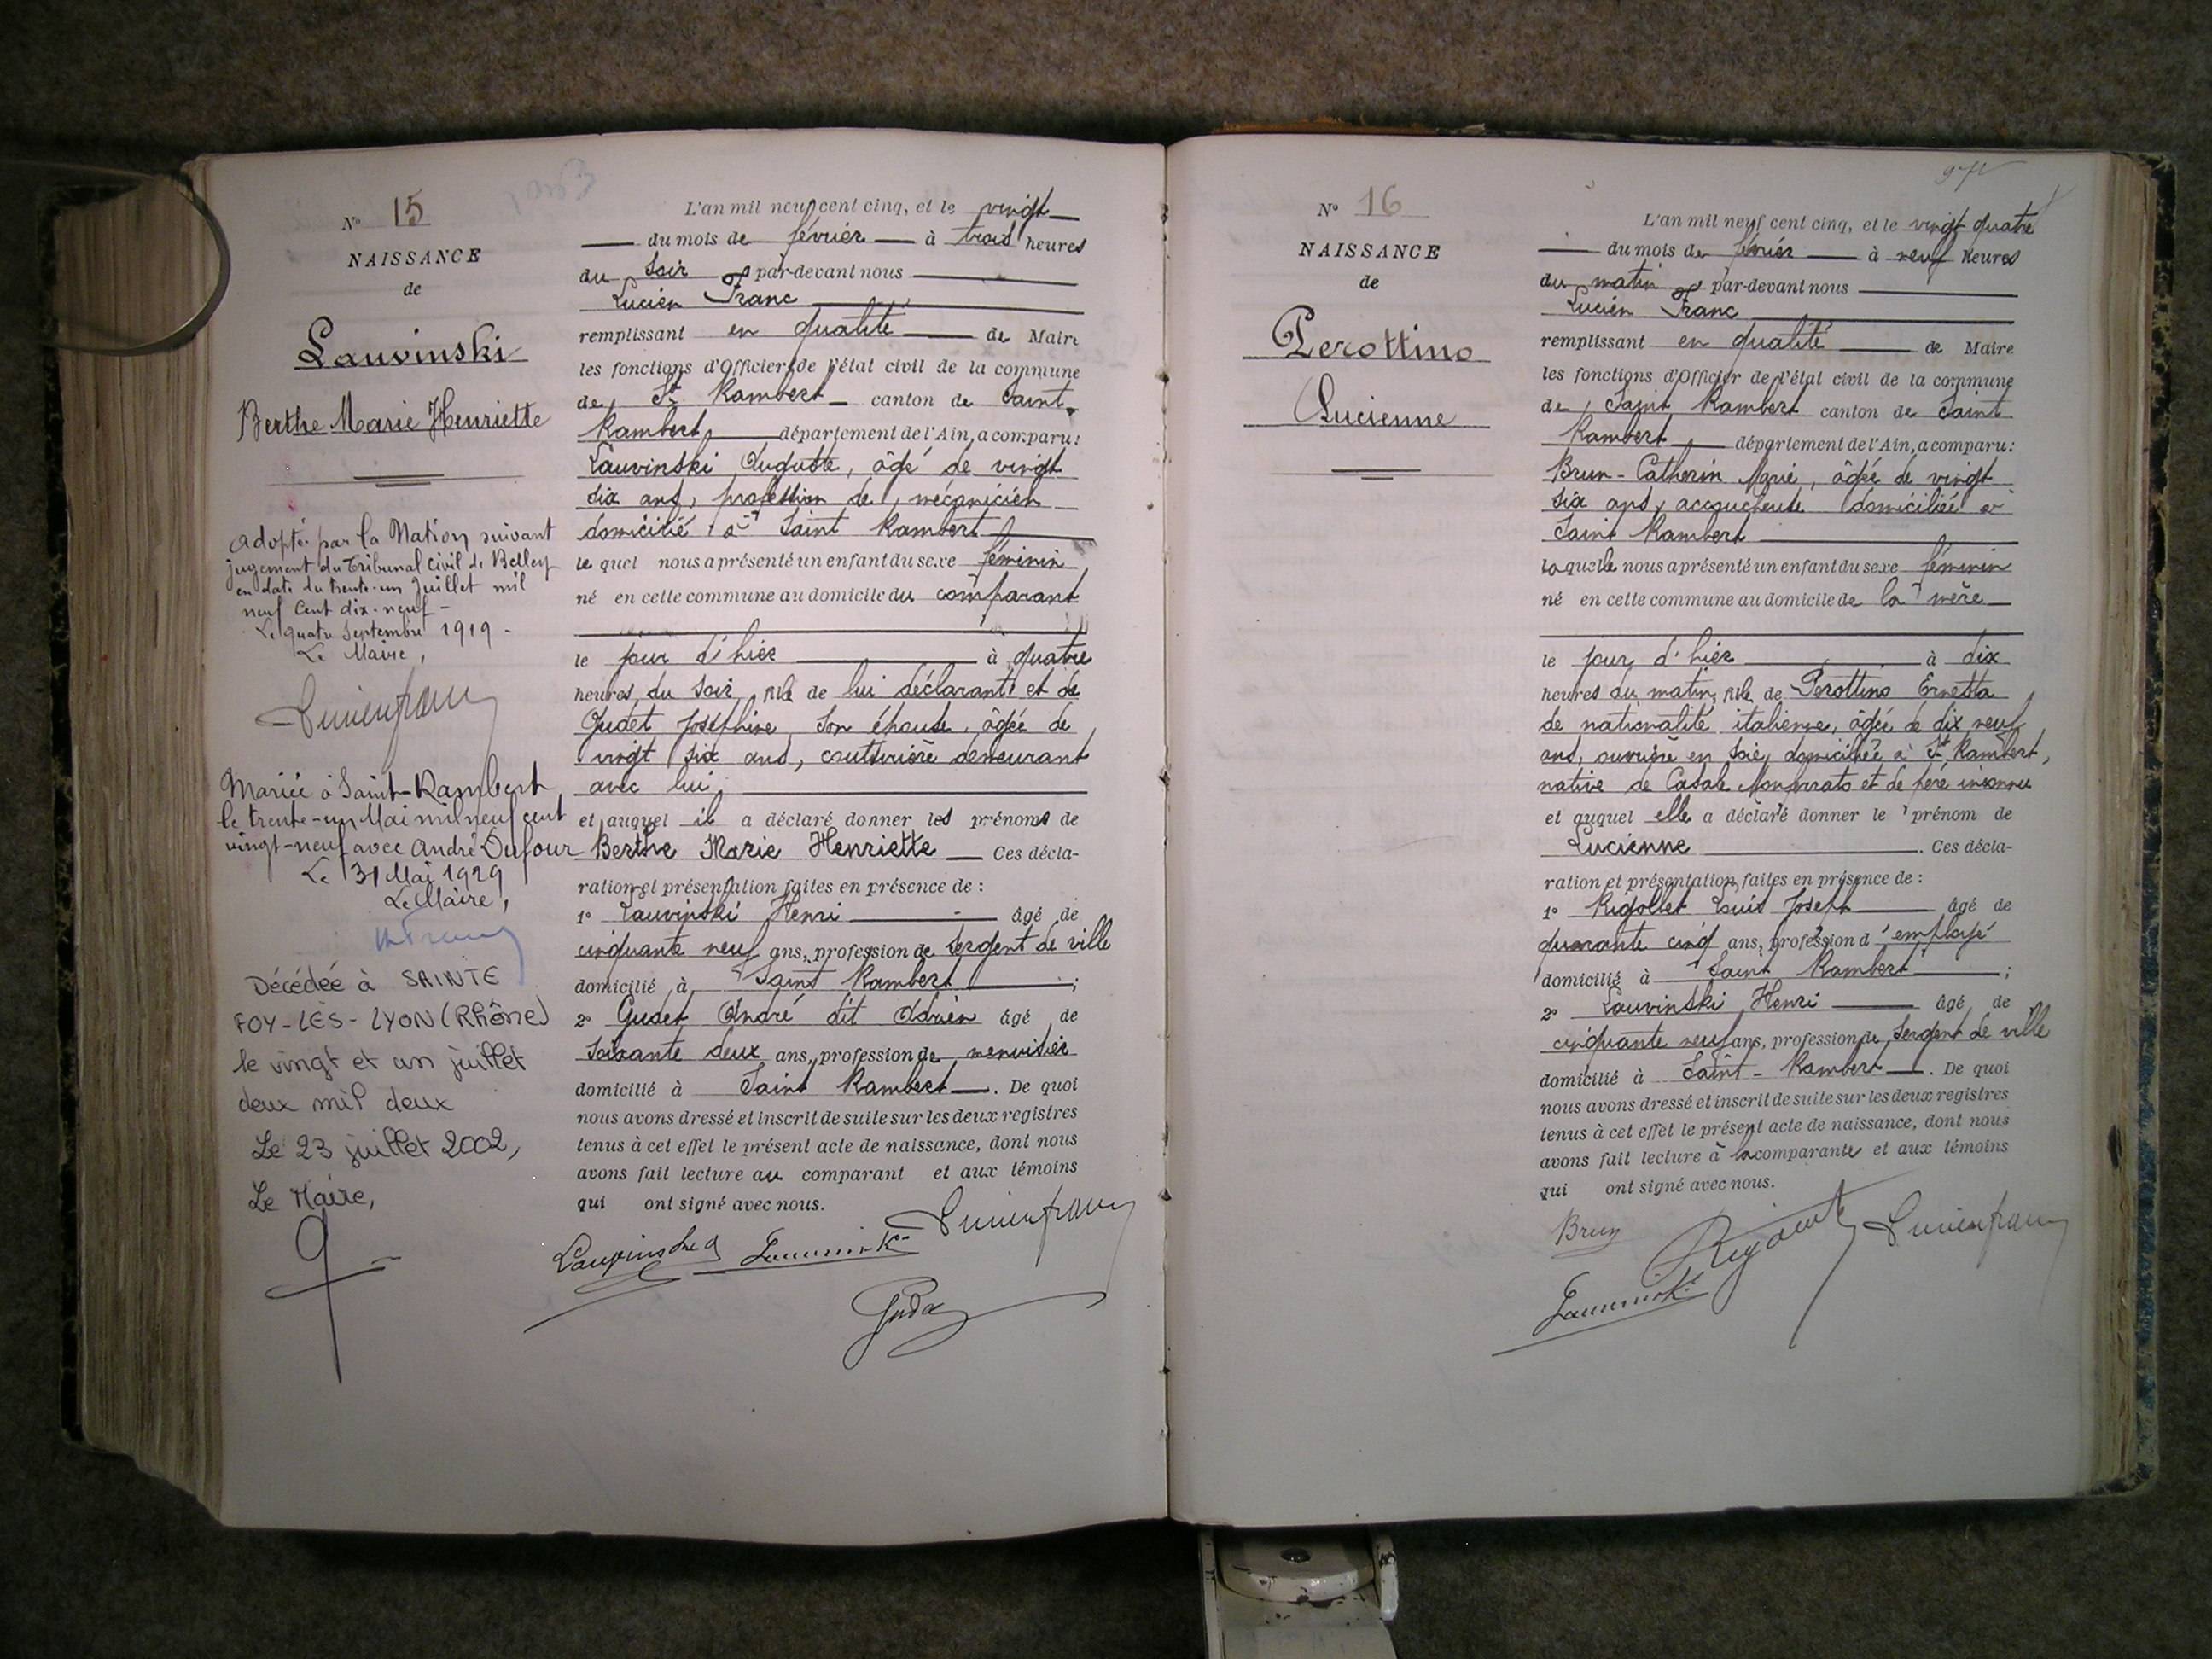 N° 15
NAISSANCE
de
Lauvinski
Berthe Marie Henriette
Adoptée par la Nation suivant
jugement du Tribunal Civil de Belley
en date du trente-un Juillet mil
neuf cent dix-neuf -
Le quatre Septembre 1919 -
Le Maire,
Lucien franc
Mariée à Saint-Rambert
le trente-un Mai mil neuf cent
vingt-neuf avec André Dufour
Le 31 Mai 1929
Le Maire,
Décédée à SAINTE
FOY-LÈS-LYON (Rhône)
le vingt et un juillet
deux mil deux
Le 23 juillet 2002,
Le Maire,
L'an mil neuf cent cinq, et le vingt
du mois de février à trois heures
du soir par-devant nous
Lucien Franc
remplissant en qualité de Maire
les fonctions d'Officier de l'état civil de la commune
de St Rambert canton de Saint
Rambert, département de l'Ain, a comparu:
Lauvinski Auguste, âgé de vingt
six ans, profession de mécanicien
domicilié à Saint Rambert
le quel nous a présenté un enfant du sexe féminin
né en cette commune au domicile du comparant
le jour d'hier à quatre
heures du soir, fille de lui déclarant et de
Gudet Joséphine, son épouse, âgée de
vingt six ans, couturière demeurant
avec lui
et auquel il a déclaré donner les prénoms de
Berthe Marie Henriette Ces décla-
ration et présentation faites en présence de :
1° Lauvinski Henri âgé de
cinquante neuf ans, profession de sergent de ville
domicilié à Saint Rambert ;
2° Gudet André dit Adrien âgé de
soixante deux ans, profession de menuisier
domicilié à Saint Rambert . De quoi
nous avons dressé et inscrit de suite sur les deux registres
tenus à cet effet le présent acte de naissance, dont nous
avons fait lecture au comparant et aux témoins
qui ont signé avec nous.
Lucien franc
N° 16
NAISSANCE
de
Perottino
Lucienne
L'an mil neuf cent cinq, et le vingt quatre
du mois de février à neuf heures
du matin par-devant nous
Lucien Franc
remplissant en qualité de Maire
les fonctions d'Officier de l'état civil de la commune
de Saint Rambert canton de Saint
Rambert département de l'Ain, a comparu:
Brun-Catherin Marie, âgée de vingt
six ans, accoucheuse domiciliée à
Saint Rambert
laquelle nous a présenté un enfant du sexe féminin
né en cette commune au domicile de la mère
le jour d'hier à dix
heures du matin, fille de Perottino Ernesta
de nationalité italienne, âgée de dix neuf
ans, ouvrière en soie, domiciliée à St Rambert,
native de Casale Monferrato et de père inconnu
et auquel elle a déclaré donner le prénom de
Lucienne . Ces décla-
ration et présentation faites en présence de :
1° Rigollet Louis Joseph âgé de
quarante cinq ans, profession d'employé
domicilié à Saint Rambert ;
2° Lauvinski Henri âgé de
cinquante neuf ans, profession de sergent de ville
domicilié à Saint-Rambert . De quoi
nous avons dressé et inscrit de suite sur les deux registres
tenus à cet effet le présent acte de naissance, dont nous
avons fait lecture à la comparante et aux témoins
qui ont signé avec nous.
Brun
Lucien franc